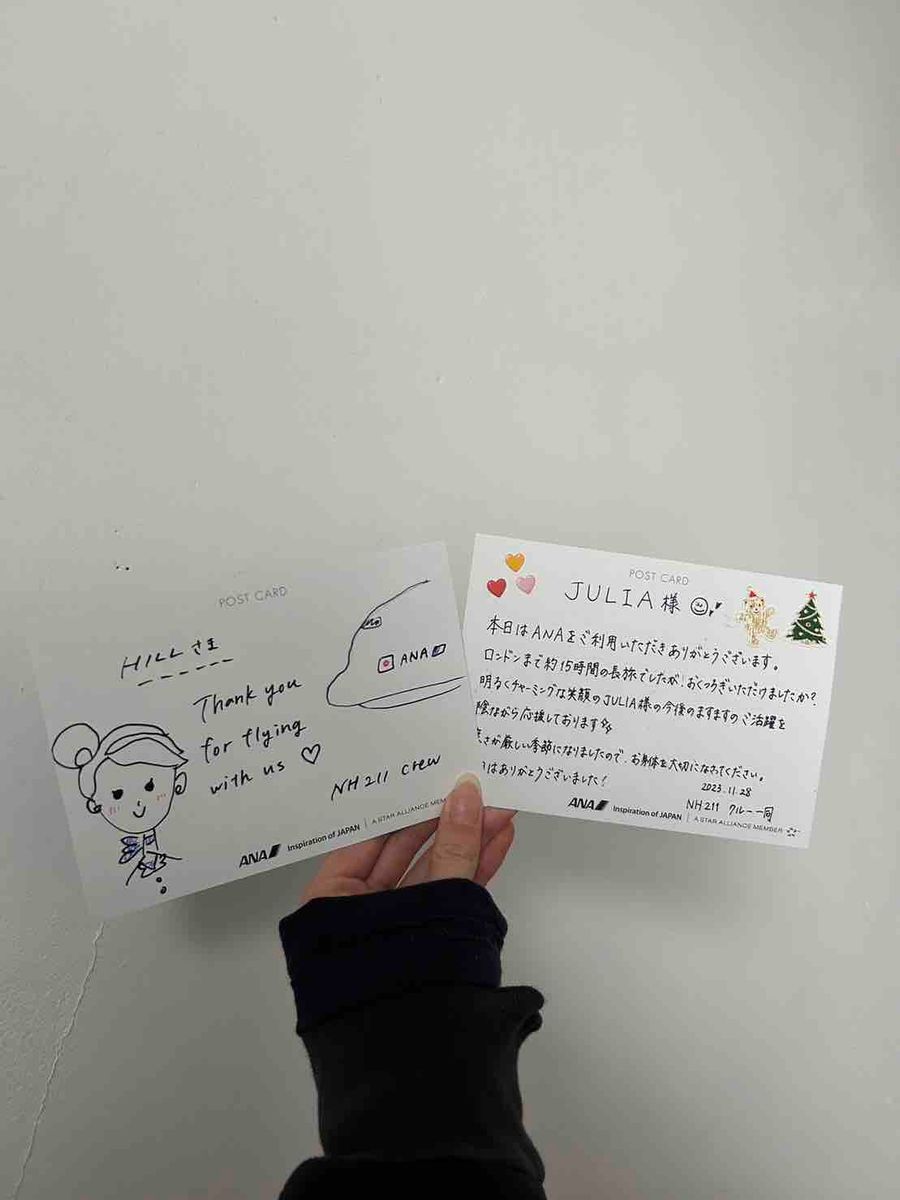 POST CARD
HILLさま
Thank you
for flying
with us ♡
NH211 crew
ANA
ANA Inspiration of JAPAN | A STAR ALLIANCE MEM
POST CARD
JULIA様
本日はANAをご利用いただきありがとうございます。
ロンドンまで約15時間の長旅でしたが、おくつろぎいただけましたか?
明るくチャーミングな笑顔のJULIA様の今後のますますのご活躍を
陰ながら応援しております
さが厳しい季節になりましたので、お身体を大切になさってください。
はありがとうございました!
2023.11.28
NH211 クルー一同
ANA Inspiration of JAPAN | A STAR ALLIANCE MEMBER